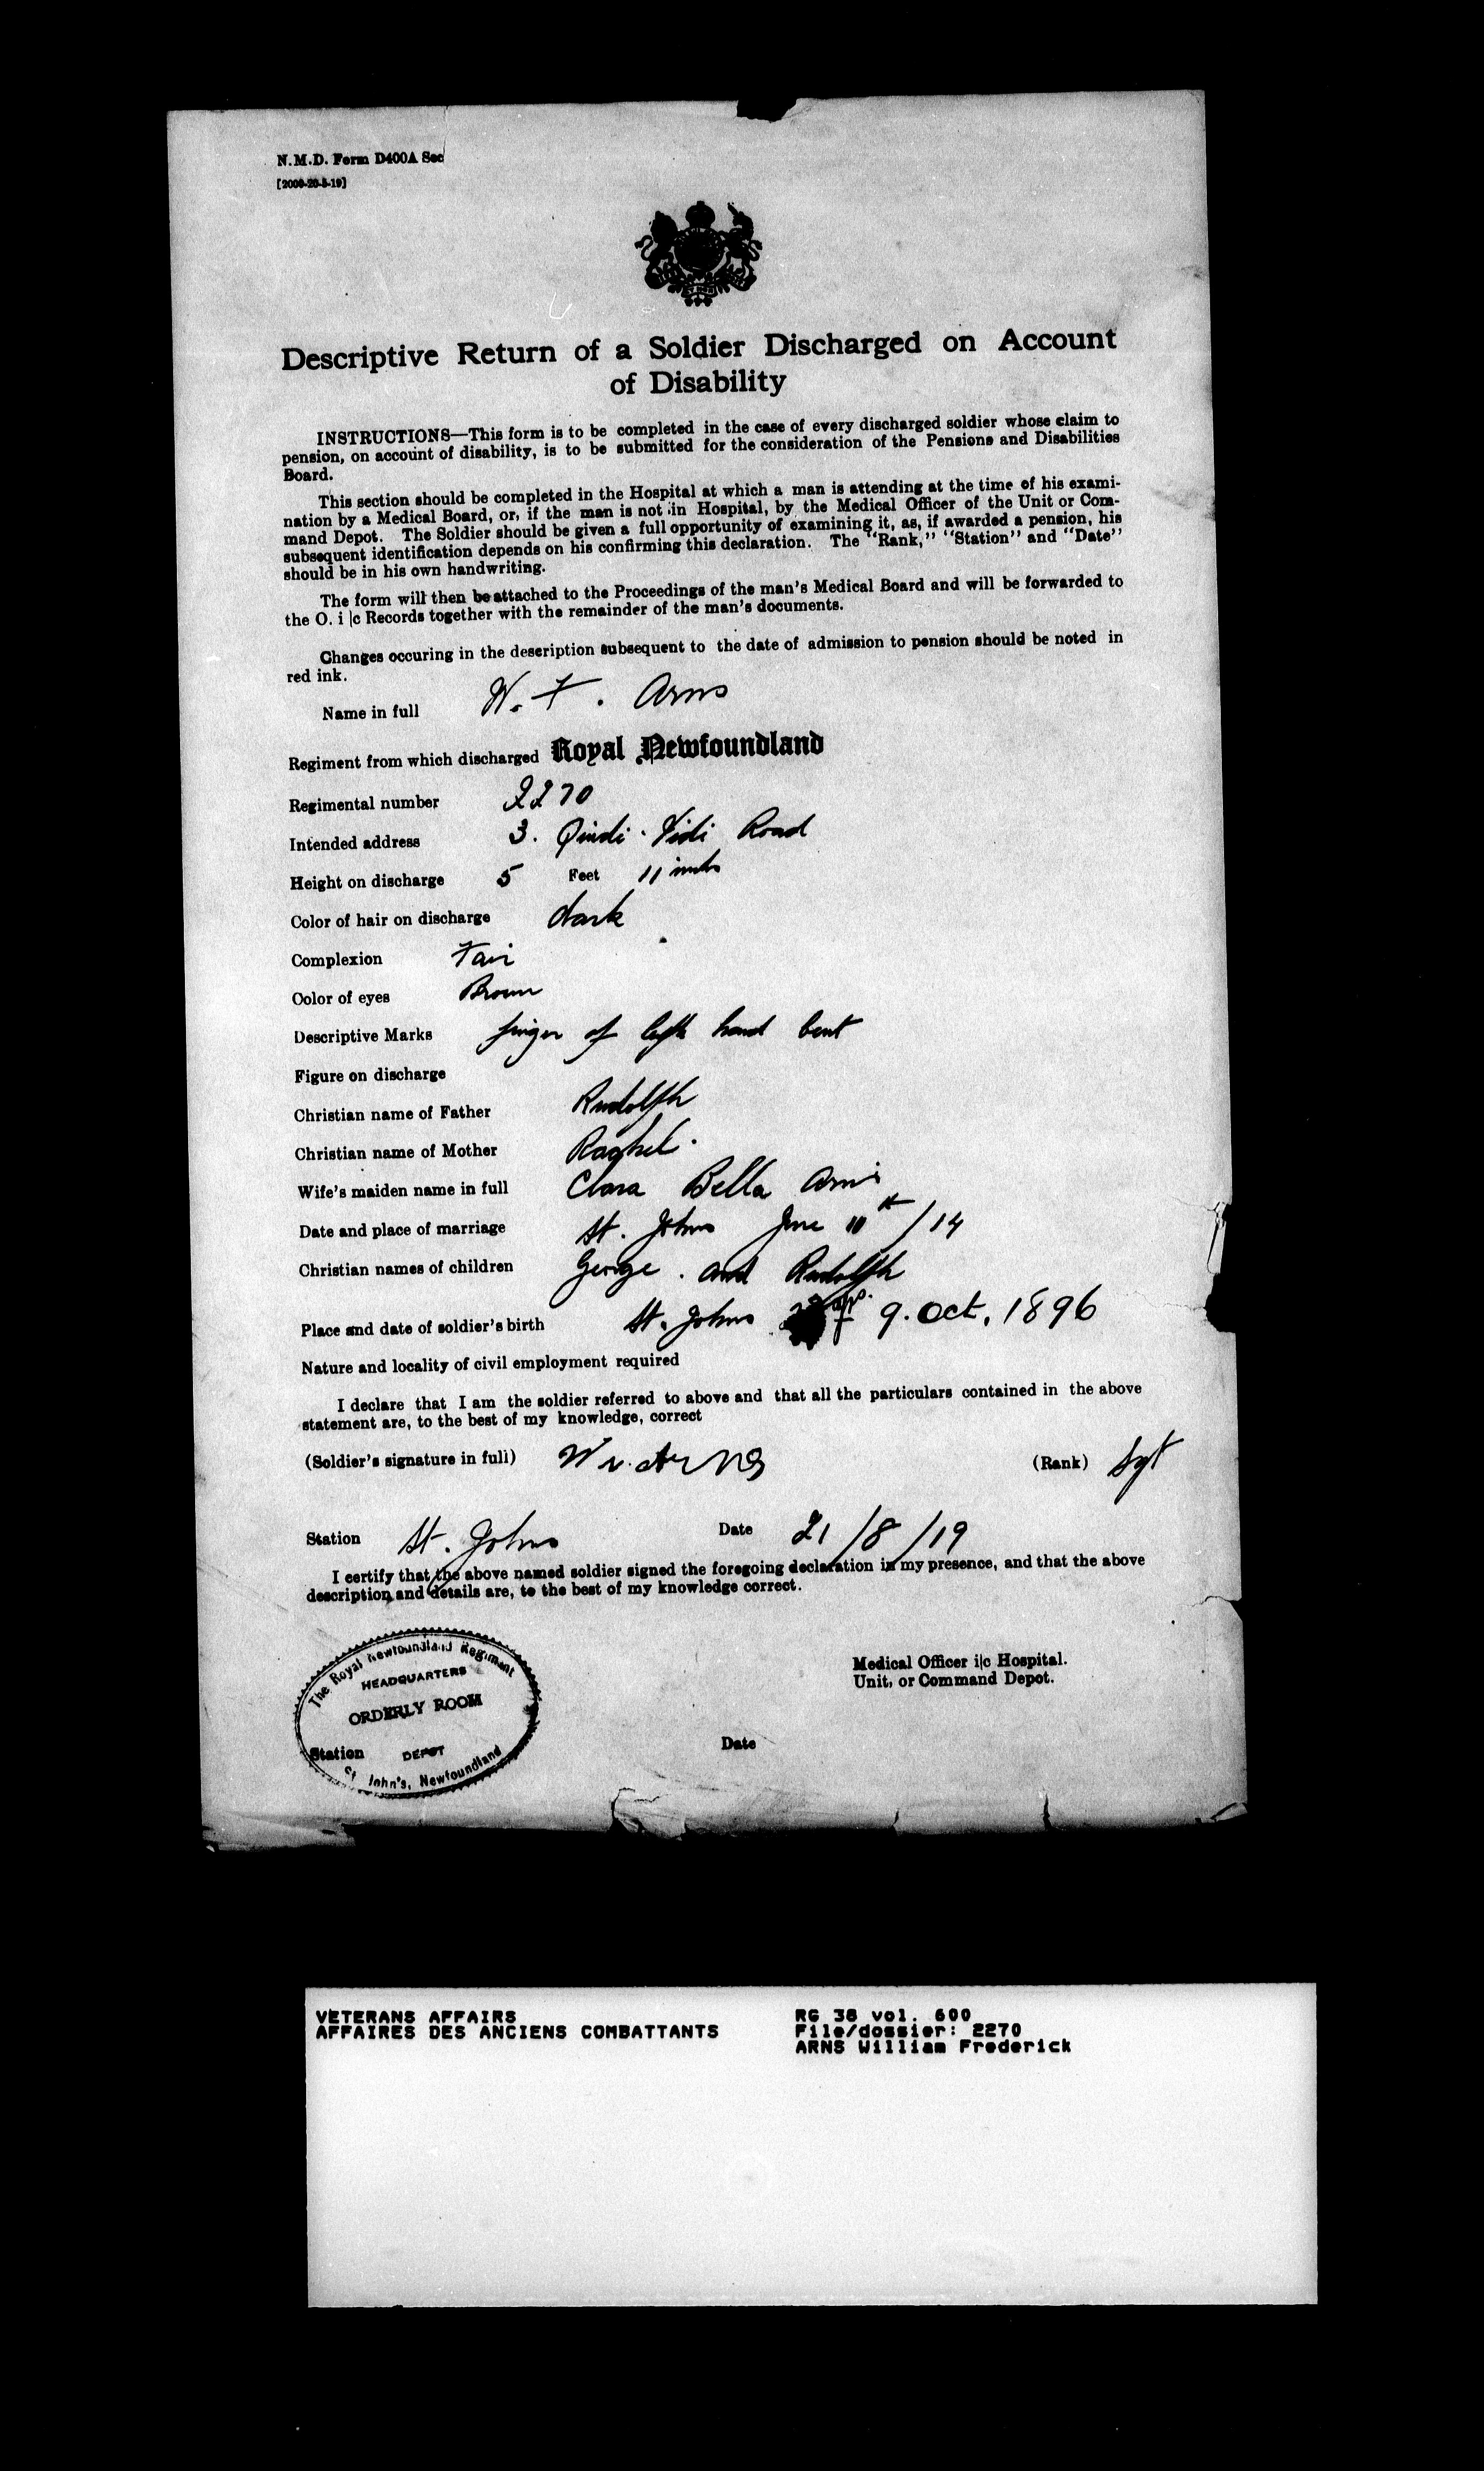 N.M.D. Form D400A Sec
[2000-20-5-19]
Descriptive Return of a Soldier Discharged on Account
of Disability
INSTRUCTIONS—This form is to be completed in the case of every discharged soldier whose claim to
pension, on account of disability, is to be submitted for the consideration of the Pensions and Disabilities
Board.
This section should be completed in the Hospital at which a man is attending at the time of his exami-
nation by a Medical Board, or, if the man is not in Hospital, by the Medical Officer of the Unit or Com-
mand Depot. The Soldier should be given a full opportunity of examining it, as, if awarded a pension, his
subsequent identification depends on his confirming this declaration. The "Rank," "Station" and "Date"
should be in his own handwriting.
The form will then be attached to the Proceedings of the man's Medical Board and will be forwarded to
the O. i|c Records together with the remainder of the man's documents.
Changes occuring in the description subsequent to the date of admission to pension should be noted in
red ink.
Name in full W. F. Arns
Regiment from which discharged Royal Newfoundland
Regimental number 2270
Intended address 3. Quidi Vidi Road
Height on discharge 5 Feet 11 inches
Color of hair on discharge dark
Complexion Fair
Color of eyes Brown
Descriptive Marks finger of left hand bent
Figure on discharge
Christian name of Father Rudolph
Christian name of Mother Raghel.
Wife's maiden name in full Clara Bella Arns
Date and place of marriage St. Johns June 10th/14
Christian names of children George. and Rudolph
Place and date of soldier's birth St. Johns 9. Oct. 1896
Nature and locality of civil employment required
I declare that I am the soldier referred to above and that all the particulars contained in the above
statement are, to the best of my knowledge, correct
(Soldier's signature in full) Arns (Rank) Sgt
Station St. Johns Date 21/8/19
I certify that the above named soldier signed the foregoing declaration in my presence, and that the above
description and details are, to the best of my knowledge correct.
Medical Officer i|c Hospital.
Unit, or Command Depot.
The Royal Newfoundland Regiment
HEADQUARTERS
ORDERLY ROOM
Station DEPOT Date
St John's, Newfoundland
VETERANS AFFAIRS
AFFAIRES DES ANCIENS COMBATTANTS
RG 38 vol. 600
File/dossier: 2270
ARNS William Frederick